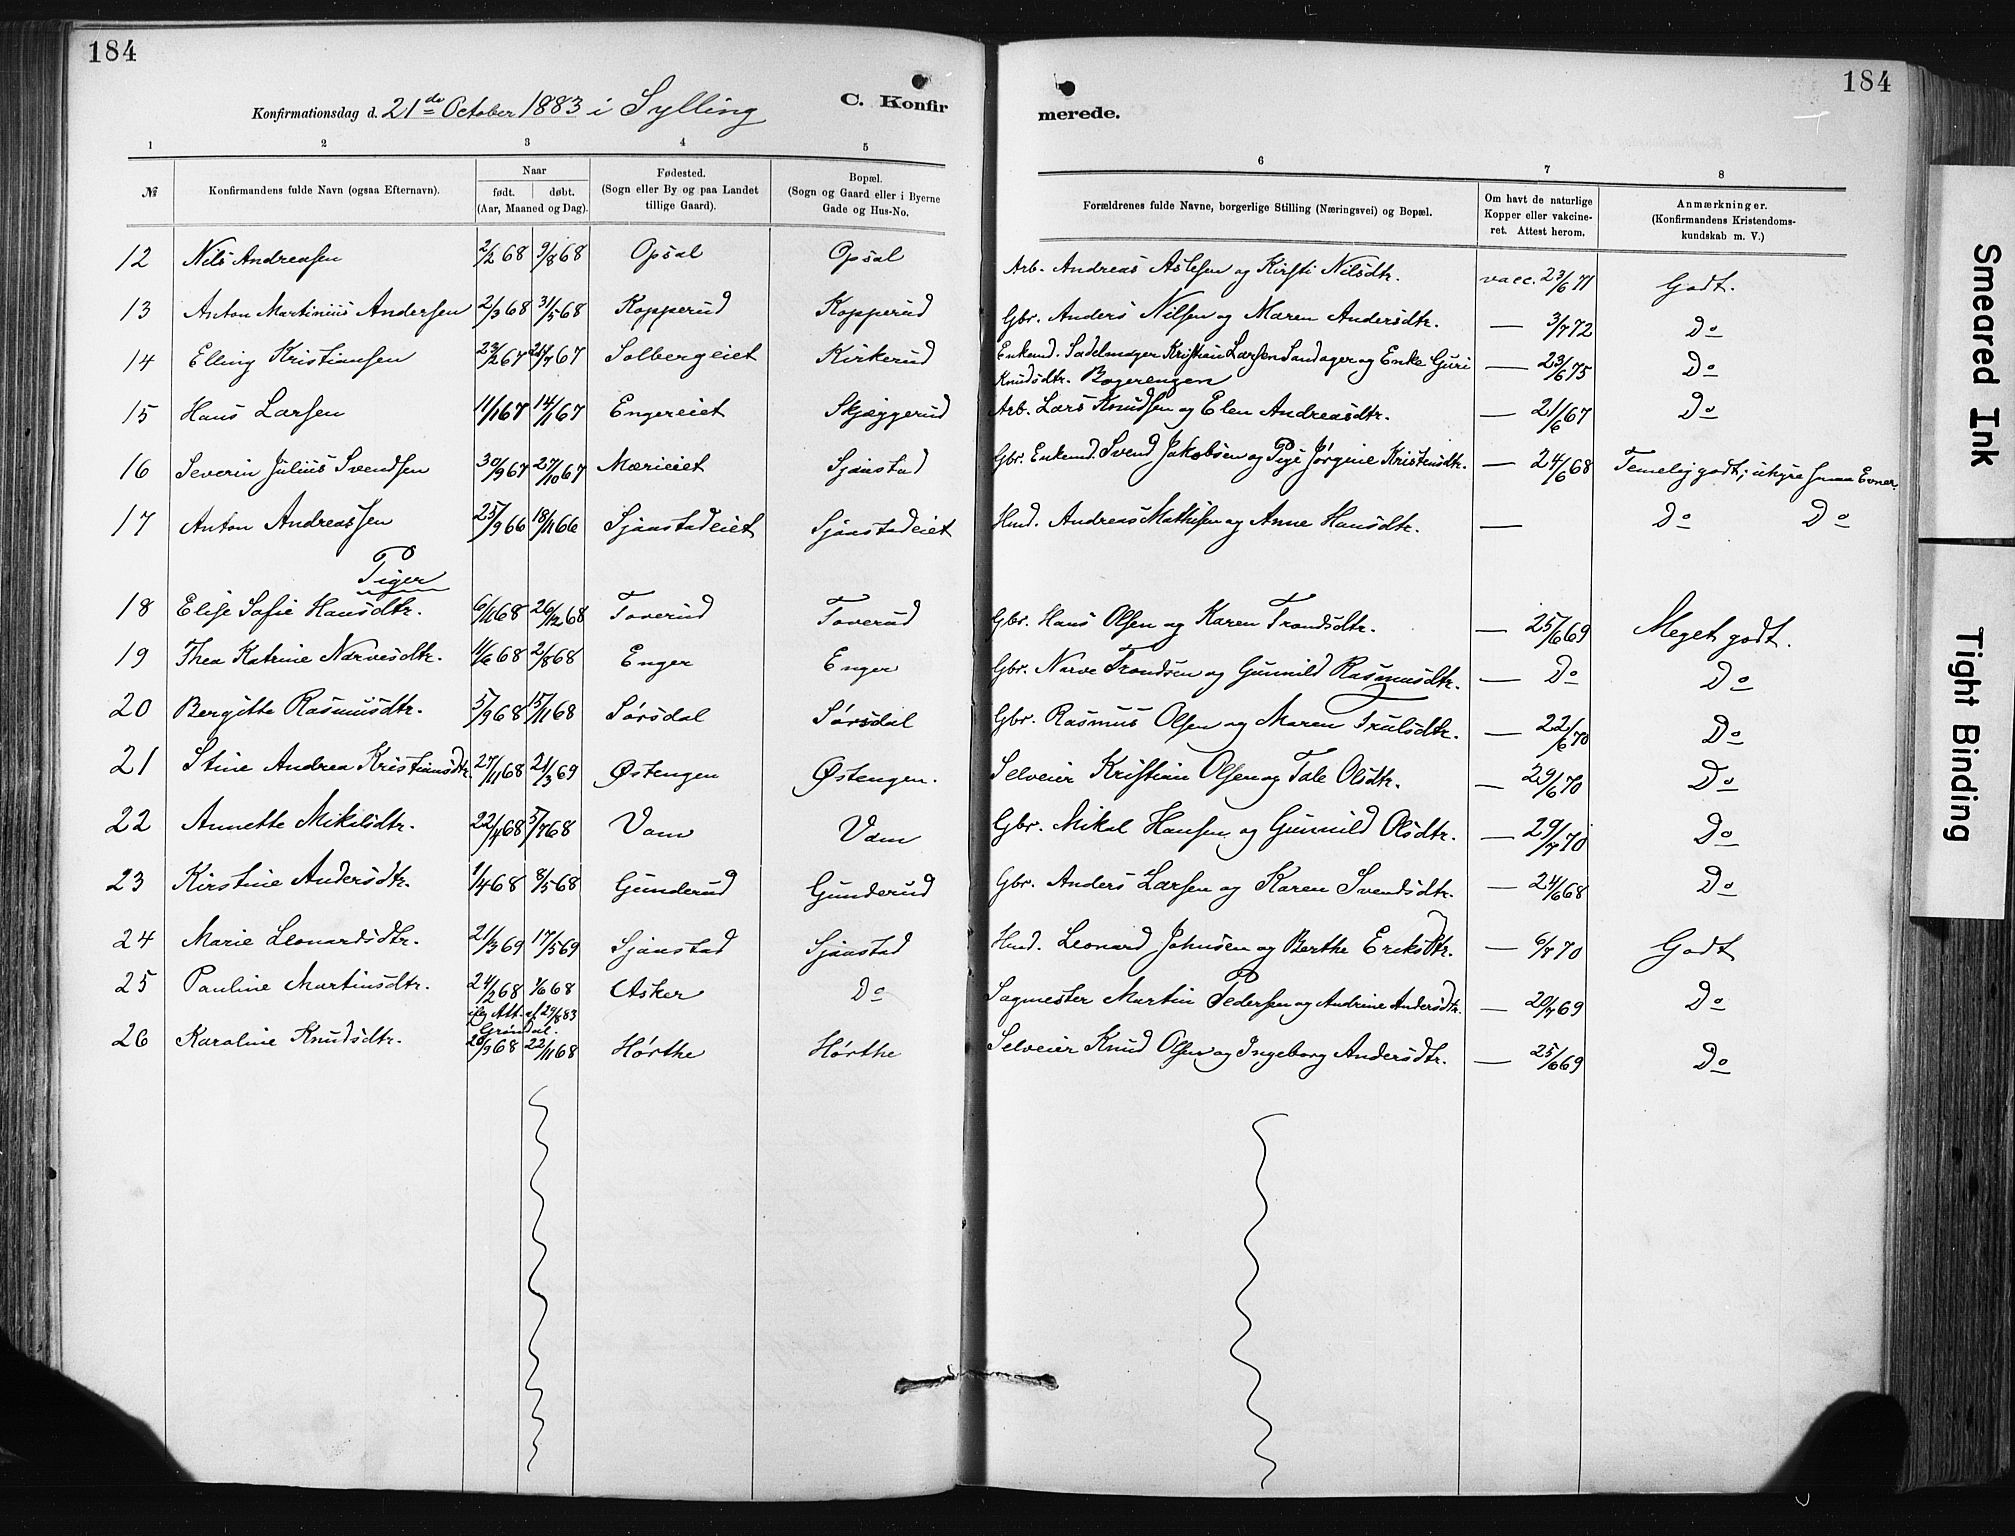 184
Konfirmationsdag d. 21de October 1883 i Sylling
C. Konfir
1 2 3 4 5
№ Konfirmandens fulde Navn (ogsaa Efternavn). Naar født. døbt. (Aar, Maaned og Dag). Fødested. (Sogn eller By og paa Landet tillige Gaard). Bopæl. (Sogn og Gaard eller i Byerne Gade og Hus-No.
12 Nils Andreasen 2/2 68 9/8 68 Opsal Opsal
13 Anton Martinius Andersen 2/3 68 31/5 68 Kopperud Kopperud
14 Elling Kristiansen 23/2 67 21/7 67 Solbergeiet Kirkerud
15 Hans Larsen 11/1 67 14/ 67 Engereiet Skjæggerud
16 Severin Julius Svendsen 30/9 67 27/10 67 Mærieiet Sjaastad
17 Anton Andreassen 25/9 66 18/11 66 Sjaastadeiet Sjaastadeiet
Piger
18 Elise Sofie Hansdtr. 6/11 68 26/12 68 Toverud Toverud
19 Thea Katrine Narvesdtr. 11/6 68 2/8 68 Enger Enger
20 Bergitte Rasmusdtr. 5/9 68 15/11 68 Sørsdal Sørsdal
21 Stine Andrea Kristiansdtr. 27/11 68 21/3 69 Østengen Østengen.
22 Annette Mikalsdtr. 22/4 68 5/7 68 Vam Vam
23 Kirstine Andersdtr. 1/4 68 8/5 68 Gunderud Gunderud
24 Marie Leonardsdtr. 21/3 69 17/5 69 Sjaastad Sjaastad
25 Pauline Martinsdtr. 24/2 68 1/6 68 Asker Do
iflg Att. af 29/8 83
Grøndal.
26 Karoline Knudsdtr. 20/9 68 22/11 68 Hørthe Hørthe
184
merede.
6 7 8
Forældrenes fulde Navne, borgerlige Stilling (Næringsvei) og Bopæl. Om havt de naturlige Kopper eller vakcineret. Attest herom. Anmærkninger. (Konfirmandens Kristendomskundskab m. V.)
Arb. Andreas Aslesen og Kirsti Nilsdtr. vacc. 23/6 71 Godt.
Gbr. Anders Nilsen og Maren Andersdtr. — 3/7 72 Do
Enkemd. Sadelmager Kristian Larsen Sandager og Enke Guri — 23/6 75 Do
Knudsdtr. Bagerengen
Arb. Lars Knudsen og Elen Andreasdtr. — 21/6 67 Do
Gbr. Enkemd. Svend Jakobsen og Pige Jørgine Kristensdtr. — 24/6 68 Temelig godt; uhyre smaa Evner.
Hmd. Andreas Mathisen og Anne Hansdtr. — Do Do
Gbr. Hans Olsen og Karen Trondsdtr. — 25/6 69 Meget godt.
Gbr. Narve Trondsen og Gunnild Rasmusdtr. — Do Do
Gbr. Rasmus Olsen og Maren Trulsdtr. — 22/6 70 Do
Selveier Kristian Olsen og Tale Olsdtr. — 29/6 70 Do
Gbr. Mikal Hansen og Gunnild Olsdtr. — 29/7 70 Do
Gbr. Anders Larsen og Karen Svendsdtr. — 24/6 68 Do
Hmd. Leonard Johnsen og Berthe Eriksdtr. — 6/8 70 Godt
Sagmester Martin Pedersen og Andrine Andersdtr. — 20/7 69 Do
Selveier Knud Olsen og Ingeborg Andersdtr. — 25/6 69 Do
Smeared Ink
Tight Binding